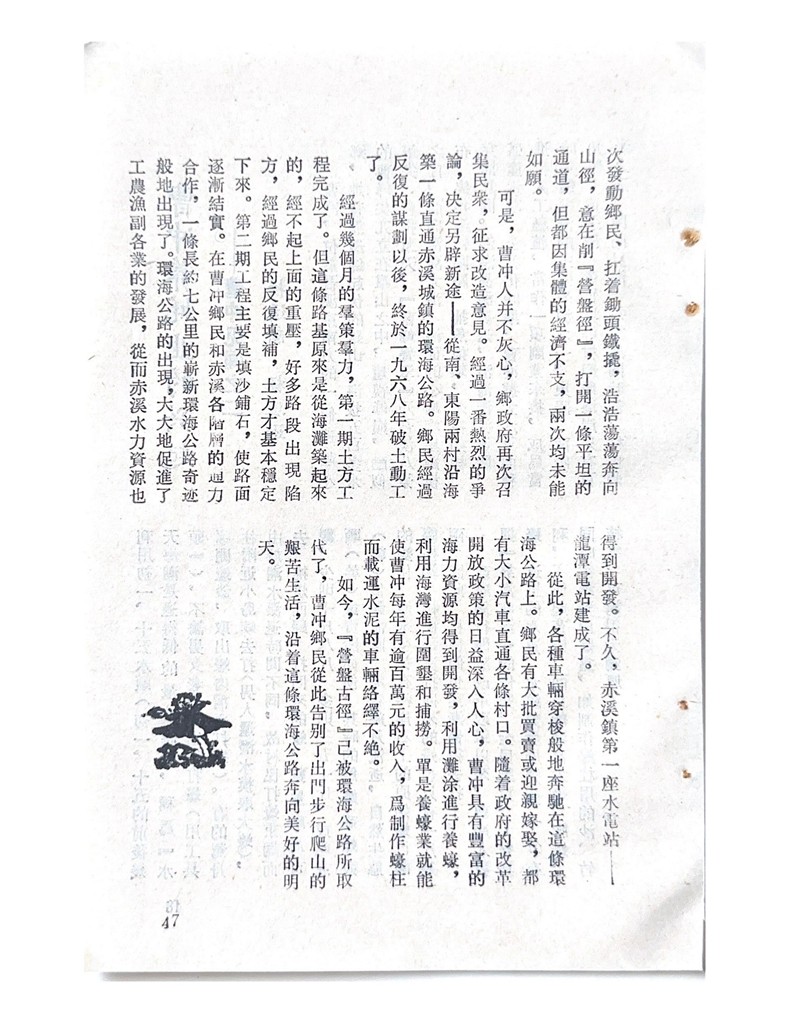 次發動鄉民、扛着鋤頭鐵撬，浩浩蕩蕩奔向
山徑，意在削『營盤徑』，打開一條平坦的
通道，但都因集體的經濟不支，兩次均未能
如願。
可是，曹冲人并不灰心，鄉政府再次召
集民衆，征求改造意見。經過一番熱烈的爭
論，決定另辟新途——從南、東陽兩村沿海
築一條直通赤溪城鎮的環海公路。鄉民經過
反復的謀劃以後，終於一九六八年破土動工
了。
經過幾個月的羣策羣力，第一期土方工
程完成了。但這條路基原來是從海灘築起來
的，經不起上面的重壓，好多路段出現陷
方，經過鄉民的反復填補，土方才基本穩定
下來。第二期工程主要是填沙鋪石，使路面
逐漸結實。在曹冲鄉民和赤溪各階層的通力
合作，一條長約七公里的嶄新環海公路奇迹
般地出現了。環海公路的出現，大大地促進了
工農漁副各業的發展，從而赤溪水力資源也
得到開發。不久，赤溪鎮第一座水電站——
龍潭電站建成了。
從此，各種車輛穿梭般地奔馳在這條環
海公路上。鄉民有大批買賣或迎親嫁娶，都
有大小汽車直通各條村口。隨着政府的改革
開放政策的日益深入人心，曹冲具有豐富的
海力資源均得到開發，利用灘涂進行養蠔，
利用海灣進行圍墾和捕撈。單是養蠔業就能
使曹冲每年有逾百萬元的收入，爲制作蠔柱
而載運水泥的車輛絡繹不絶。
如今，『營盤古徑』己被環海公路所取
代了，曹冲鄉民從此告别了出門步行爬山的
艱苦生活，沿着這條環海公路奔向美好的明
天。
47